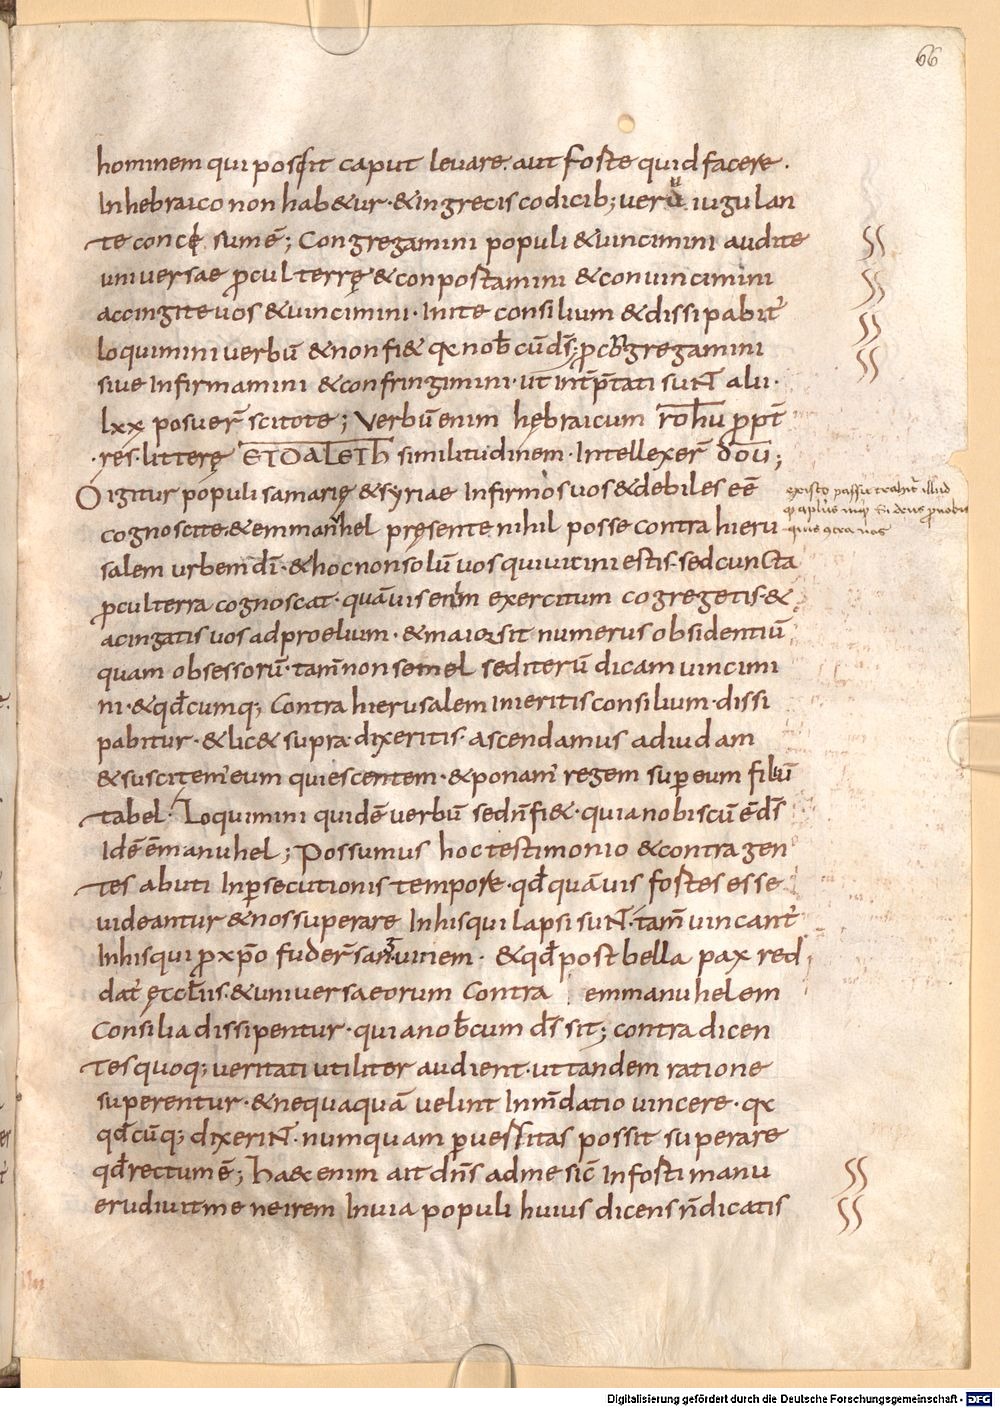 66
hominem qui possit caput levare. aut forte quid facere.
In hebraico non hab&ur. & in grecis codicib; uero iugulan
te concęsumē; Congregamini populi & uincimini audite
uniuersae ꝓcul terrę & conpostamini & conuincimini
accingite uos & uincimini. Inite consilium & dissipabit̃
loquimini uerbū & non fi& qꝛ nob̄cū d̄s; ꝓ congregamini
siue Infirmamini & confringimini. ut int̄p̄tati suNT alii.
lxx posuer̄ scitote; Verbū enim hębraicum rohu ꝓpt̄
.res. litterę ET DALETH similitudinem. Intellexer̄ dou;
O igitur populi samarię & syriae Infirmos uos & debiles eē
cognoscite. & emmanuhel pręsente nihil posse contra hieru
salem urbem d̄i. & hoc non solū uos qui uicini estis. sed cuncta
ꝓcul terra cognoscat. quāuis enim exercitum cogregetis. &
acingatis uos ad proelium. & maior sit numerus obsidentiū
quam obsessorū. tam̄ non semel sed iterū dicam uincimi
ni. & qd̄cumq; Contra hierusalem inieritis consilium. dissi
pabitur. & lic& supra dixeritis. ascendamus ad iudam
& suscitem̃ eum quiescentem. & ponam̃ regem sup eum filiū
tabel. Loquimini quidē uerbū sed n̄ fi&. quia nobiscū ē d̄s
Idē ēmanuhel; Possumus hoc testimonio & contra gen
tes abuti In ꝑsecutionis tempore. qd̄ quāuis fortes esse
uideantur & nos superare In his qui lapsi suNT. tam̄ uincant̃
In his qui ꝓ xp̄o fuder̄ sanguinem. & qd̄ post bella pax red
dat̃ ęccl̄iis. & uniuersa eorum Contra emmanuhelem
Consilia dissipentur. quia nob̄cum d̄s sit; contradicen
tes quoq; ueritati utiliter audient. ut tandem ratione
superentur. & nequaquā uelint In m̄datio uincere. qꝛ
qd̄cūq; dixeriNT. numquam ꝑuersitas possit superare
qd̄ rectum ē; Haec enim ait dn̄s ad me sic̄ In forti manu
erudiuit me ne irem In uia populi huius dicens n̄ dicatis
ex isto passu trahit̃ illud
Si deus ꝓ nobis
quis contra nos
Digitalisierung gefördert durch die Deutsche Forschungsgemeinschaft - DFG